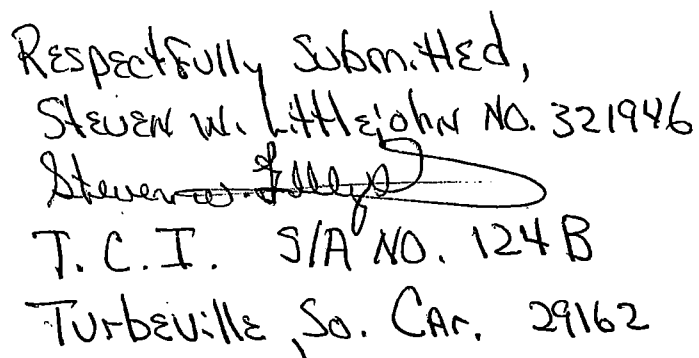 Respectfully Submitted,
Steven W. Littlejohn NO. 321946
Steven W.
T.C.I. S/A NO. 124B
Turbeville, So. Car. 29162